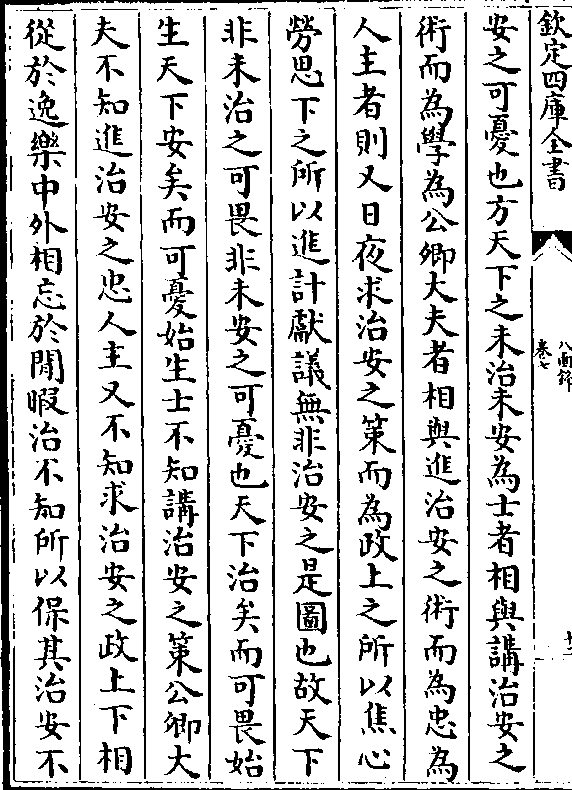 欽定四庫全書
八面鋒
卷七
十二
安之可憂也方天下之未治未安為士者相與講治安之
術而為學為公卿大夫者相與進治安之術而為忠為
人主者則又日夜求治安之策而為政上之所以焦心
勞思下之所以進計獻議無非治安之是圖也故天下
非未治之可畏非未安之可憂也天下治矣而可畏始
生天下安矣而可憂始生士不知講治安之策公卿大
夫不知進治安之忠人主又不知求治安之政上下相
從於逸樂中外相忘於閒暇治不知所以保其治安不